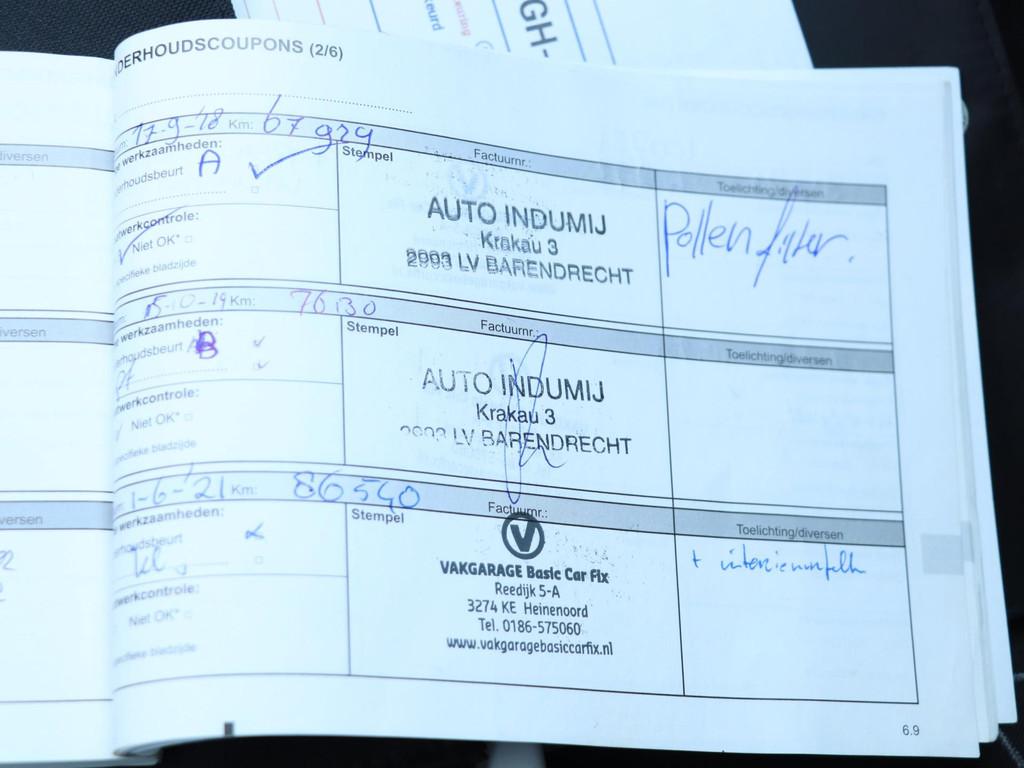 GH-
eurd
DERHOUDSCOUPONS (2/6)
17-9-'18 Km: 67 929
werkzaamheden:
erhoudsbeurt A
Stempel
Factuurnr.:
Toelichting/diversen
twerkcontrole:
Niet OK*
pecifieke bladzijde
AUTO INDUMIJ
Krakau 3
2993 LV BARENDRECHT
Pollen filter.
diversen
15-10-19 Km: 76130
werkzaamheden:
erhoudsbeurt B
Stempel
Factuurnr.:
Toelichting/diversen
twerkcontrole:
Niet OK*
ecifieke bladzijde
AUTO INDUMIJ
Krakau 3
LV BARENDRECHT
iversen
1-6-'21 Km: 86540
werkzaamheden:
erhoudsbeurt
Stempel
Factuurnr.:
Toelichting/diversen
twerkcontrole:
Niet OK*
ecifieke bladzijde
VAKGARAGE Basic Car Fix
Reedijk 5-A
3274 KE Heinenoord
Tel. 0186-575060
www.vakgaragebasiccarfix.nl
versen
6.9